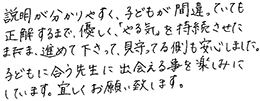 説明が分かりやすく、子どもが間違っていても
正解するまで、優しく、「やる気」を持続させた
まま、進めて下さって、見守てる側も安心しました。
子どもに合う先生に出会える事を楽しみに
しています。宜しくお願い致します。